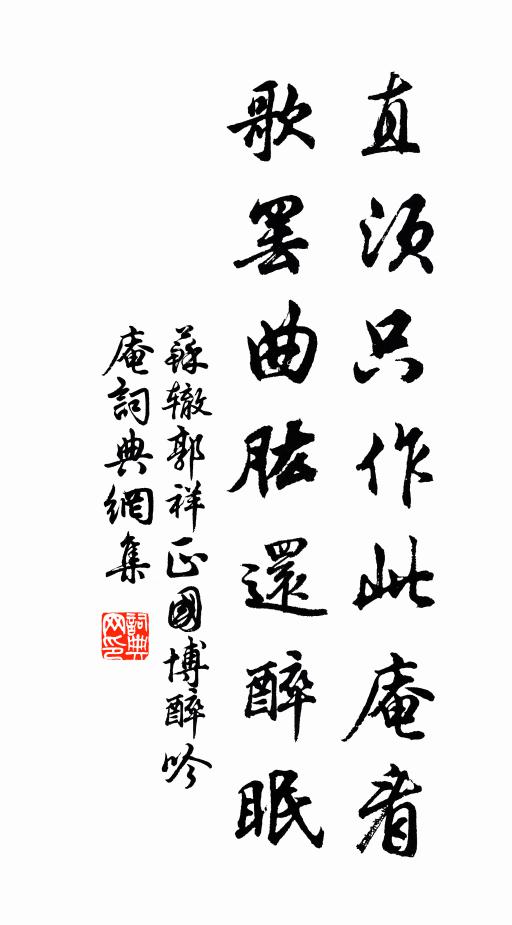 直須只作此庵看
歌罷曲肱還醉眠
蘇辙郭祥正國博醉吟
庵詞典網集
詞典
网印